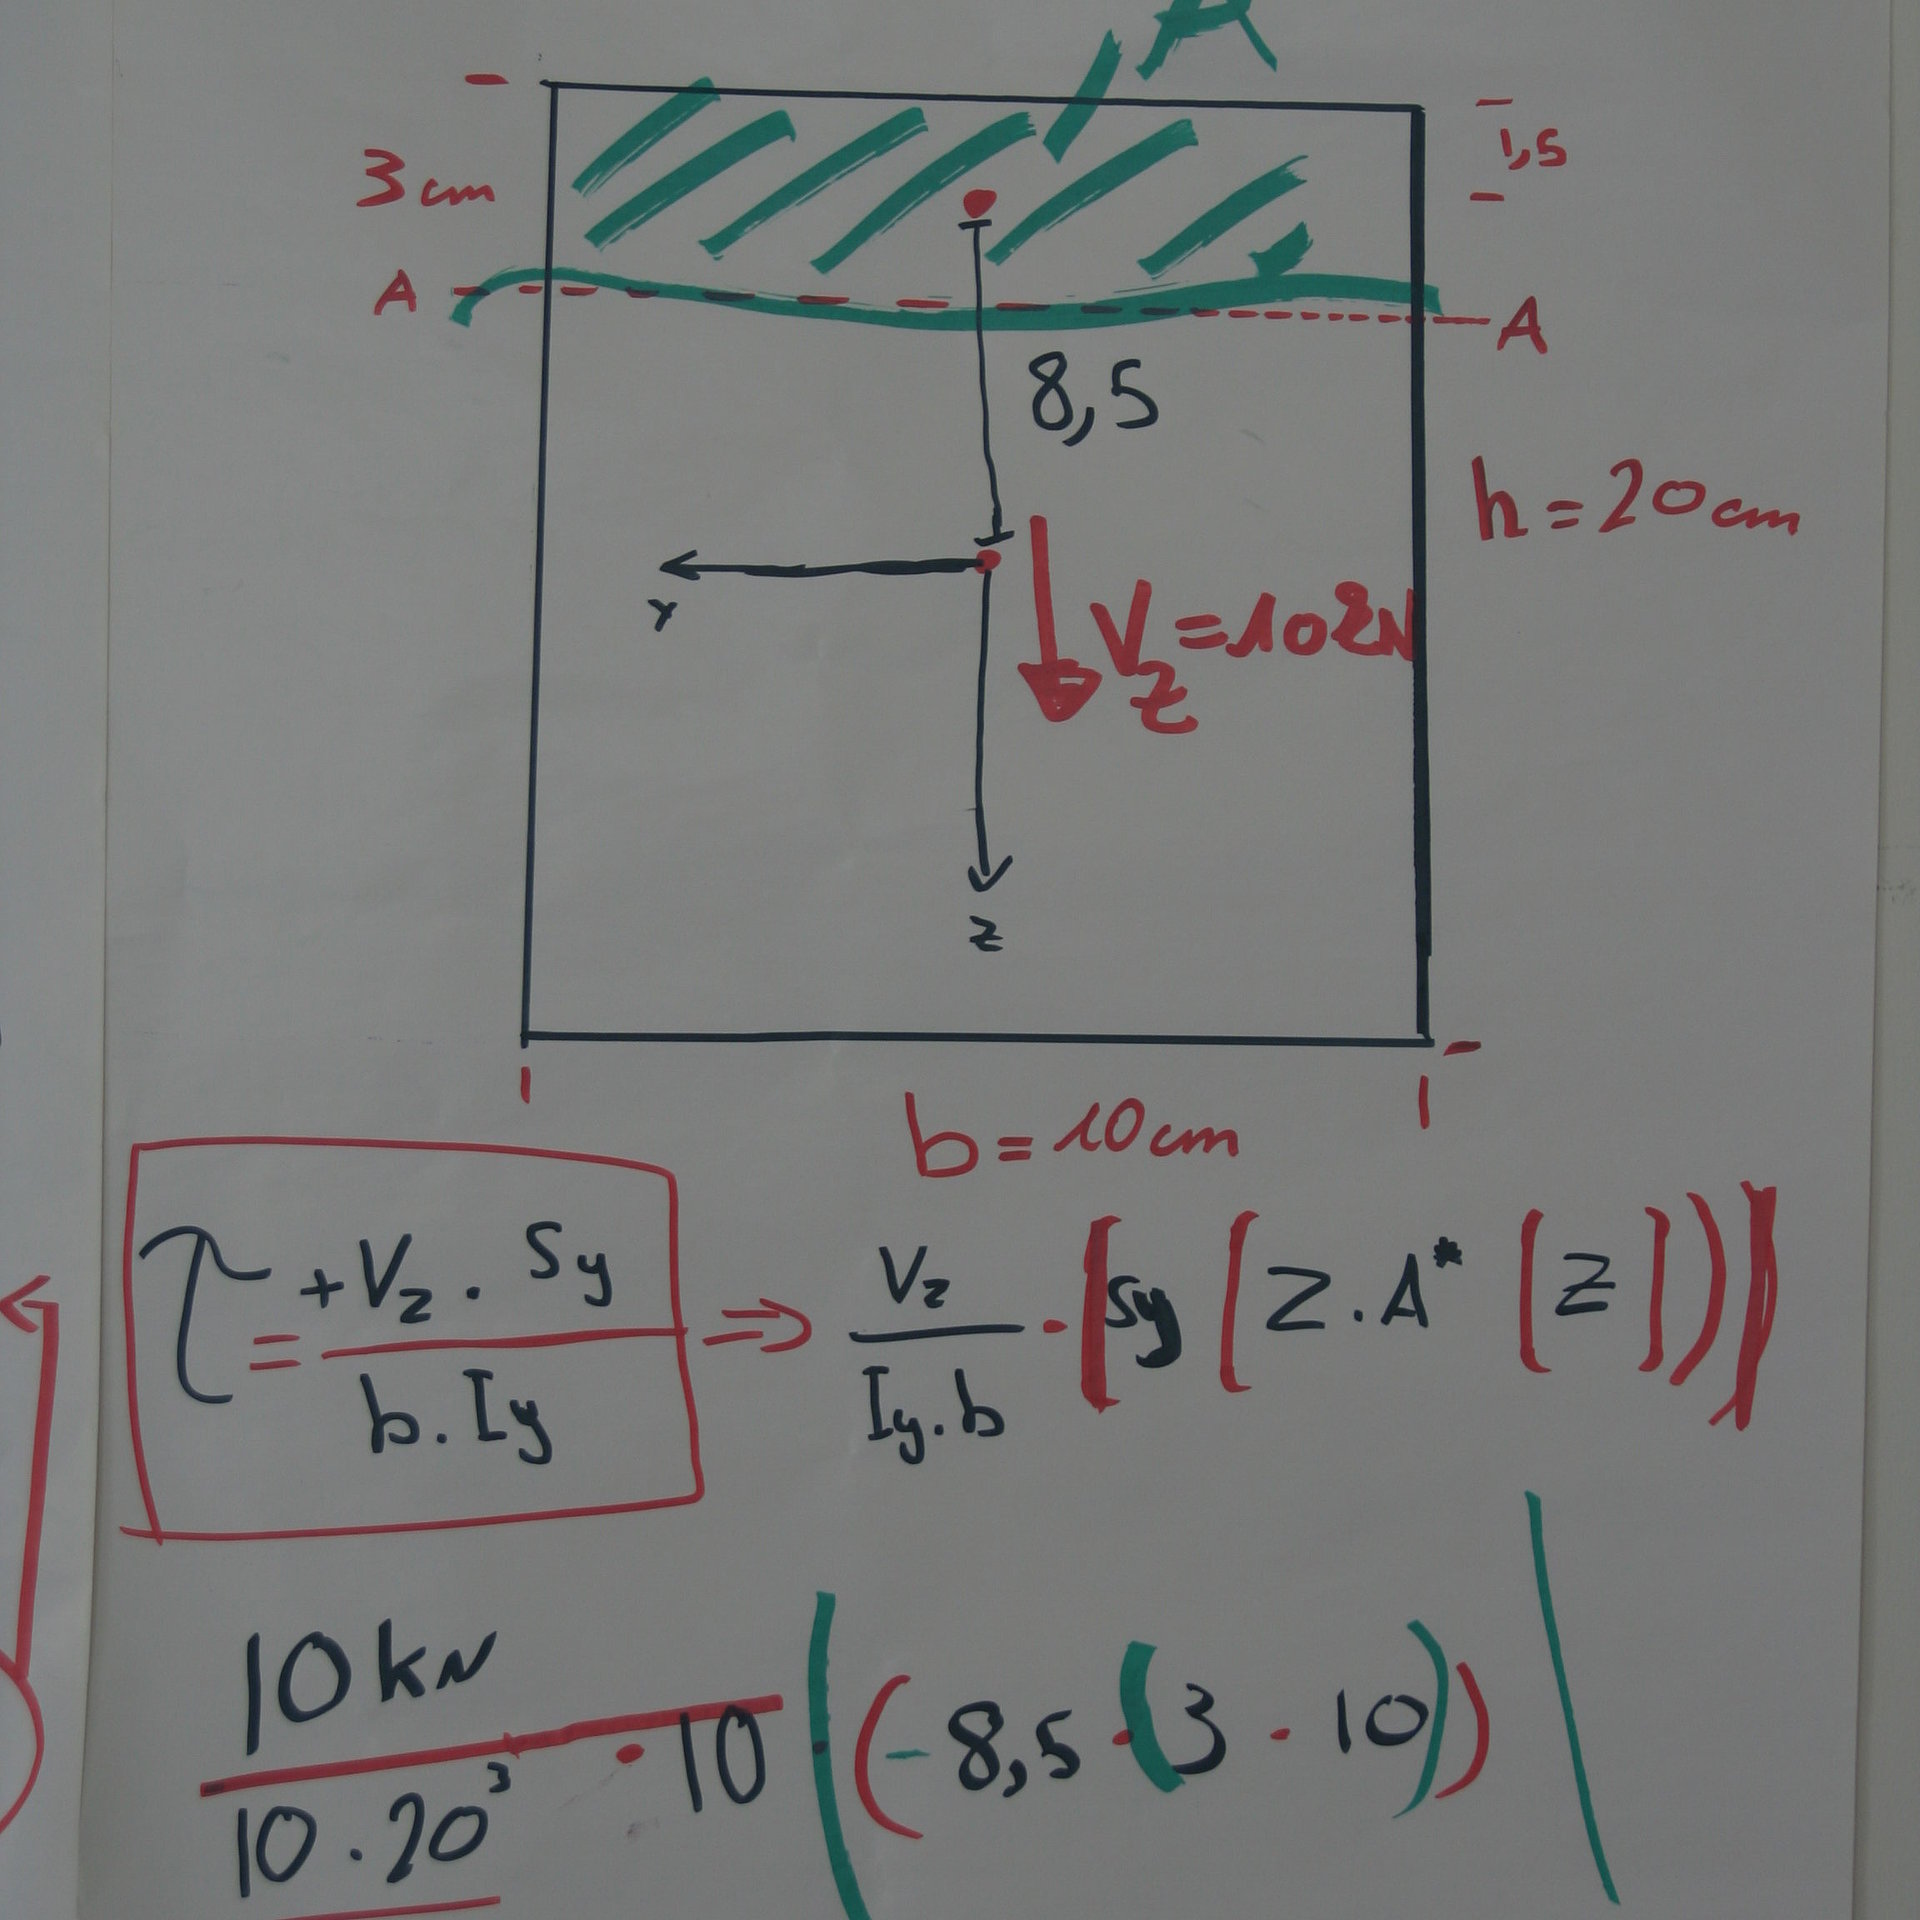 A
3 cm
1,5
A
A
8,5
h = 20 cm
y
Vz = 10 kN
z
b = 10 cm
τ = +Vz · Sy / b · Iy ⇒ Vz / Iy · b · [Sy [Z · A* [z])]
10 kN / 10 · 20³ · 10 · |(-8,5 · (3 · 10))|